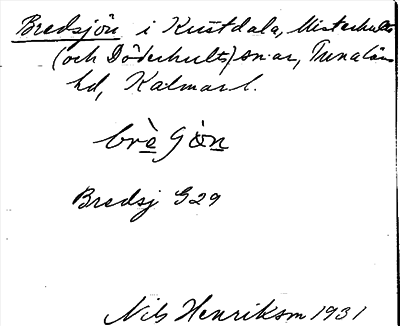 Bredsjön i Kustdala, Misterhults
(och Döderhults) sn:ar, Tunaläns
hd, Kalmar l.
brè Gòn
Bredsj G29
Nils Henriksm 1931